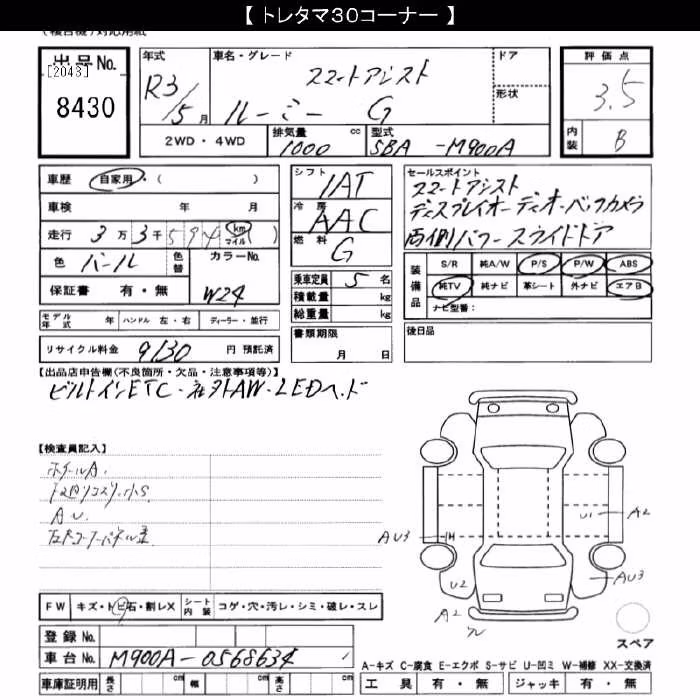 【 トレタマ30コーナー 】
(複合機)対応用紙
出品No. 年式 車名・グレード ドア 評価点
[2043] R3/5月 スマートアシスト 形状 3.5
8430 ルーミー G
2WD・4WD 排気量 1000 cc 型式 5BA -M900A 内装 B
車歴 自家用・( ) シフト IAT セールスポイント
スマートアシスト
車検 年 月 冷房 AAC ディスプレイオーディオ・バックカメラ
走行 3万3千594 km マイル ( ) 燃料 G 両側パワースライドドア
色 パール 色替 カラーNo. W24 乗車定員 5名
装備品 S/R 純A/W P/S P/W ABS
保証書 有・無 積載量 kg 純TV 純ナビ 革シート 外ナビ エアB
総重量 kg ナビ型番:
モデル年式 年 ハンドル 左・右 ディーラー・並行 書類期限 後日品
リサイクル料金 9130 円 預託済 月 日
【出品店申告欄(不良箇所・欠品・注意事項等)】
ビルトインETC・社外AW・LEDヘッド
【検査員記入】
ホイールA.
AU.
AU3 U1 A2
U2 AU3
A2
FW キズ・トビ石・割レX シート内装 コゲ・穴・汚レ・シミ・破レ・スレ
スペア
登録No.
車台No. M900A-0568634
A-キズ C-腐食 E-エクボ S-サビ U-凹ミ W-補修 XX-交換済
車庫証明用 長さ cm 幅 cm 高さ cm 工具 有・無 ジャッキ 有・無